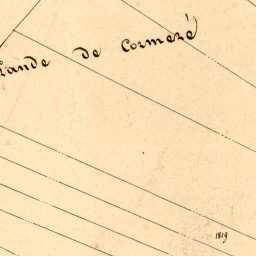 Lande de Cormeré
1819